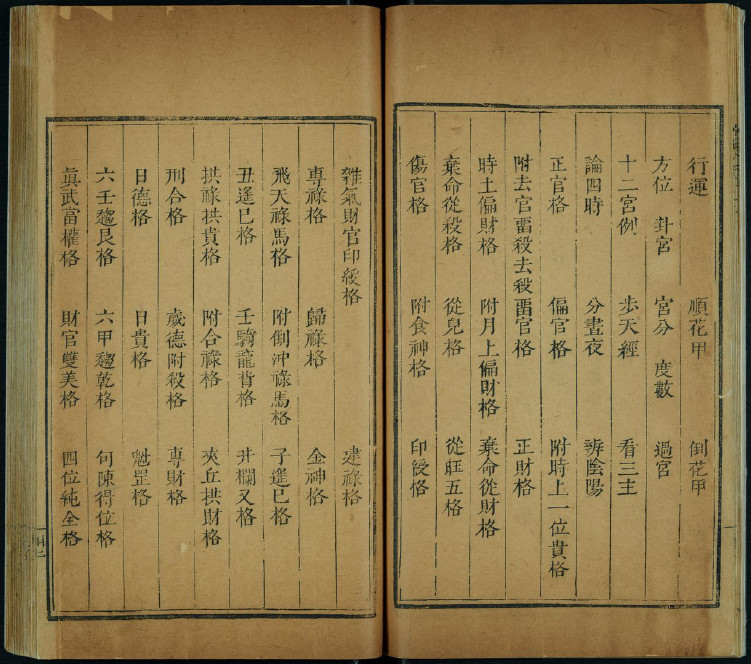 行運 順花甲 倒花甲
方位 卦宮 宮分 度數 過宮
十二宮例 步天經 看三主
論四時 分晝夜 辨陰陽
正官格 偏官格 附時上一位貴格
附去官畱殺去殺畱官格 正財格
時上偏財格 附月上偏財格 棄命從財格
棄命從殺格 從兒格 從旺五格
傷官格 附食神格 印綬格
雜氣財官印綬格 建祿格
專祿格 歸祿格 金神格
飛天祿馬格 附倒冲祿馬格 子遙巳格
丑遙巳格 壬騎龍背格 井欄叉格
拱祿拱貴格 附合祿格 夾丘拱財格
刑合格 歲德附殺格 專財格
日德格 日貴格 魁罡格
六壬趨艮格 六甲趨乾格 勾陳得位格
眞武當權格 財官雙美格 四位純全格